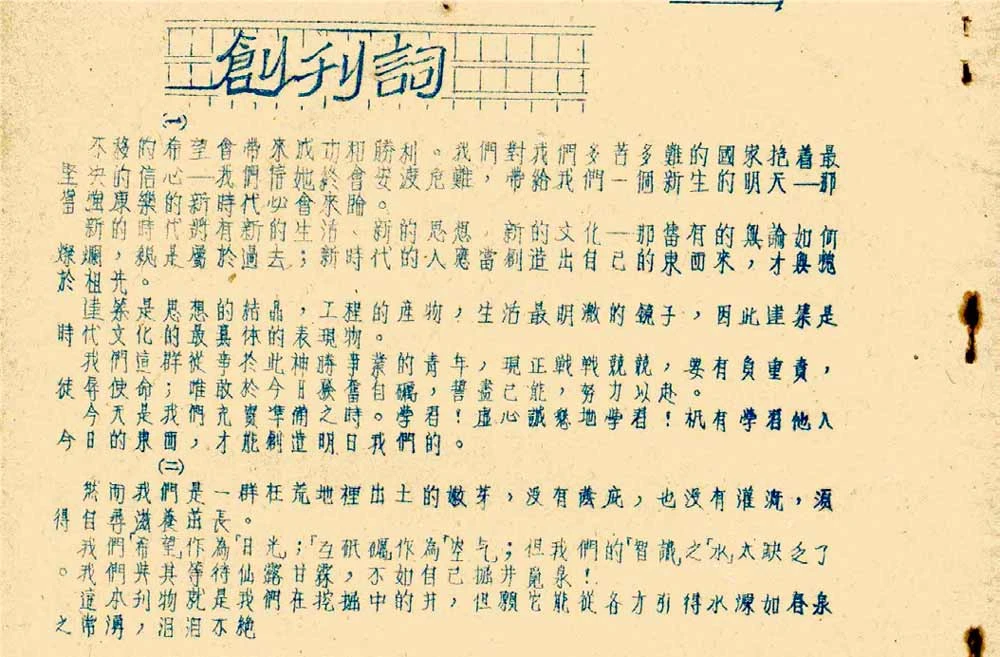 創刊詞
(一)
不移的希望會帶來成功和勝利。我們對我們多苦多難的國家抱着最
堅決的信心—我們信她終會安渡危難,帶給我們一個新生的明天—那
強康樂的新時代必會來臨。
新的時代將有新的生活、新的思想、新的文化—那舊有的無論如何
燦爛,總是屬於過去;新時代的人應當創造出自己的東西來,才無愧
於祖先。
建築是思想的結晶,工程的產物,生活最明澈的鏡子,因此建築是
時代文化的最具体的表現物。
我們這群從事於此神勝事業的青年,現正戰戰兢兢,要有負重責,
徒辱使命;唯敢於今日發奮自礪,誓盡己能,努力以赴。
今天是我們充實準備之時。學習!虛心誠懇地學習!祇有學習他人
今日的東西,才能創造明日我們的。
(二)
然而我們是一群在荒地裡出土的嫩芽,没有蔭庇,也没有灌溉,須
得自尋滋養茁長。
我們「希望」作為「日光」;「互砥礪作為「空气」;但我們的「智識之「水」太缺乏了
。我們與其等待仙露甘霖,不如自己掘井覓泉!
這本刊物就是我們在挖掘中的井,但願它能從各方引得水源如春泉
之常湧,汩汩不絶